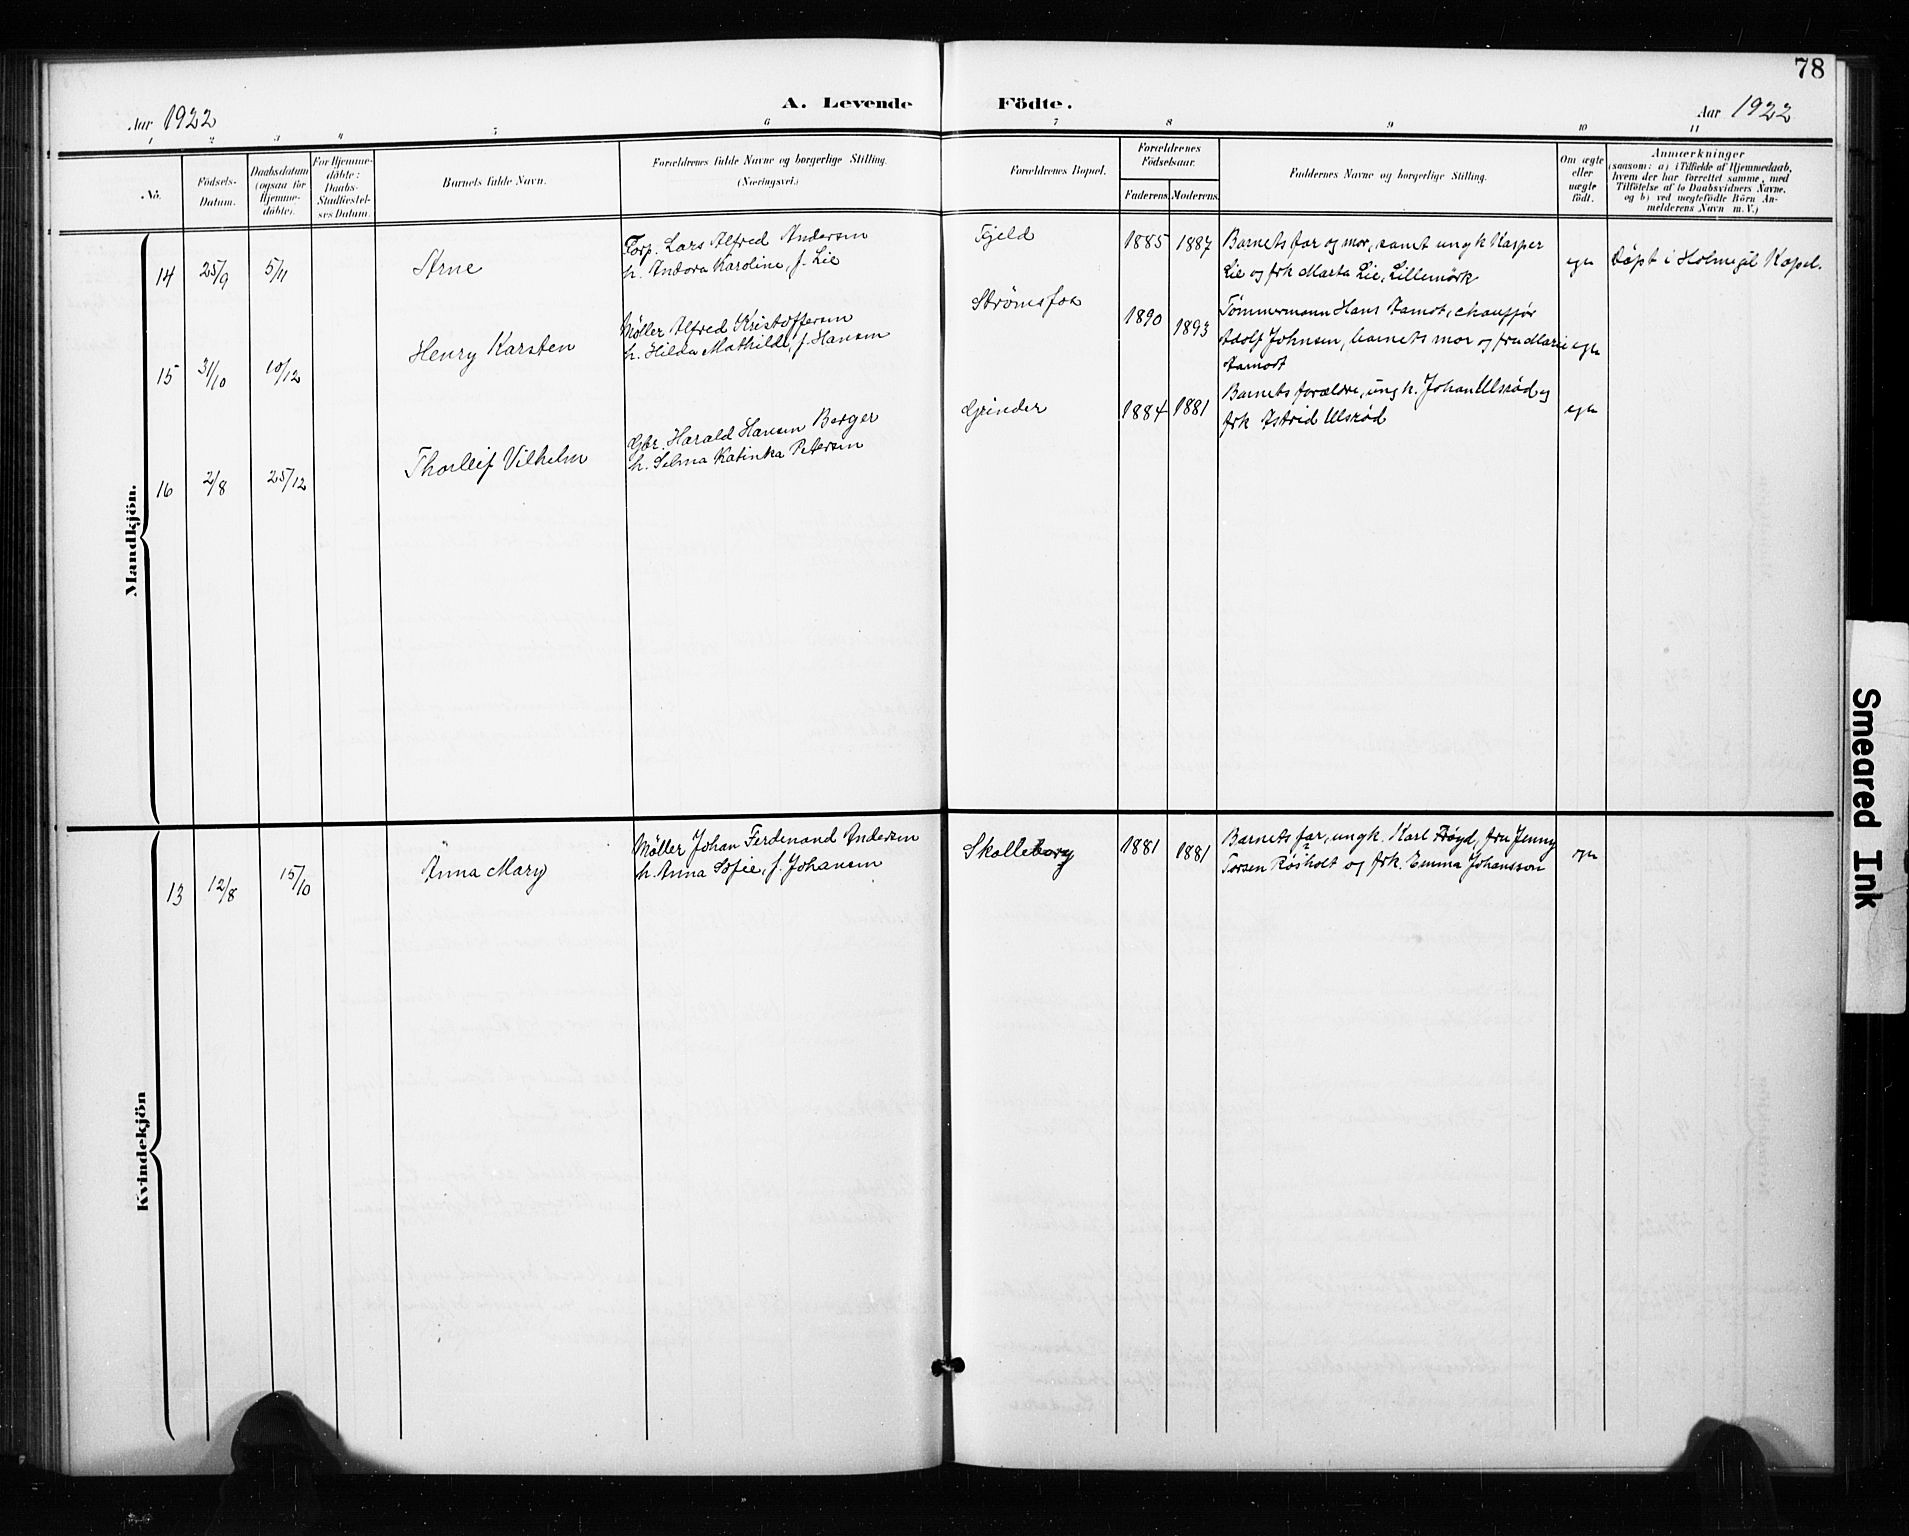 78
Aar 1922
A. Levende Födte.
Aar 1922
1 2 3 4 5 6 7 8 9 10 11
No.
Födsels-
Datum.
Daabsdatum
(ogsaa for
Hjemme-
döbte).
For Hjemme-
döbte:
Daabs-
Stadfæstel-
ses Datum.
Barnets fulde Navn.
Forældrenes fulde Navne og borgerlige Stilling.
(Næringsvei.)
Forældrenes Bopæl.
Forældrenes
Födselsaar.
Faderens Moderens
Faddernes Navne og borgerlige Stilling.
Om ægte
eller
uægte
födt.
Anmærkninger
(saasom: a) i Tilfælde af Hjemmedaab,
hvem der har forrettet samme, med
Tilföielse af to Daabsvidners Navne.
og b) ved uægtefödte Börn An-
melderens Navn m. V.)
Mandkjön.
14 25/9 5/11 Arne
Forp. Lars Alfred Andersen
h. Andora Karoline, f. Lie
Fjeld 1885 1887
Barnets far og mor, samt ungk Kasper
Lie og frk Marta Lie, Lillemörk
egte
Døpt i Holmegil Kapel.
15 31/10 10/12 Henry Karsten
Møller Alfred Kristoffersen
h. Hilda Mathilde, f. Hansen
Strømsfos 1890 1893
Tømmermann Hans Aamot, chauffør
Adolf Johnsen, barnets mor og fru Marie
Aamodt
egte
16 2/8 25/12 Thorleif Vilhelm
Gbr. Harald Hansen Berger
h. Selma Katinka Petersen
Grinder 1884 1881
Barnets forældre, ungk. Johan Ulsrød og
frk Astrid Ulsrød
egte
Kvindekjön
13 12/8 15/10 Anna Mary
Møller Johan Ferdenand Andersen
h. Anna Sofie, f. Johansen
Skolleborg 1881 1881
Barnets far, ungk. Karl Frøyd, fru Jenny
Torsen Røsholt og frk. Emma Johansson
egte
Smeared Ink